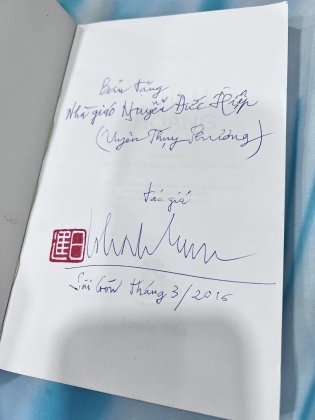 Bản tặng
Nhà giáo Nguyễn Đức Hiệp
(Uyên Thụy Phương)
tác giả
Sài Gòn tháng 3/2016